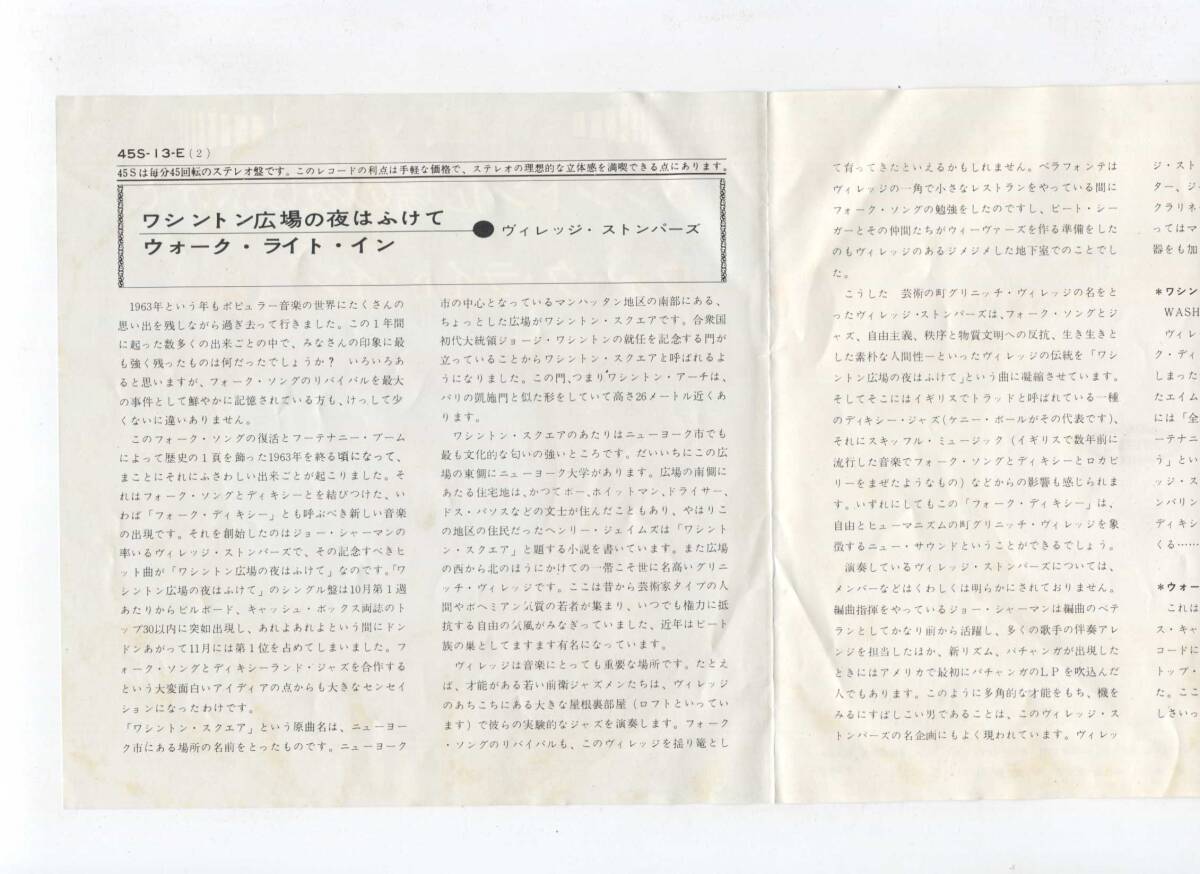 45S-13-E(2)
45Sは毎分45回転のステレオ盤です。このレコードの利点は手軽な価格で、ステレオの理想的な立体感を満喫できる点にあります。
ワシントン広場の夜はふけて
ウォーク・ライト・イン
●ヴィレッジ・ストンパーズ
1963年という年もポピュラー音楽の世界にたくさんの
思い出を残しながら過ぎ去って行きました。この1年間
に起った数多くの出来ごとの中で、みなさんの印象に最
も強く残ったものは何だったでしょうか? いろいろあ
ると思いますが、フォーク・ソングのリバイバルを最大
の事件として鮮やかに記憶されている方も、けっして少
くないに違いありません。
このフォーク・ソングの復活とフーテナニー・ブーム
によって歴史の1頁を飾った1963年を終る頃になって、
まことにそれにふさわしい出来ごとが起こりました。そ
れはフォーク・ソングとディキシーとを結びつけた、い
わば「フォーク・ディキシー」とも呼ぶべき新しい音楽
の出現です。それを創始したのはジョー・シャーマンの
率いるヴィレッジ・ストンパーズで、その記念すべきヒ
ット曲が「ワシントン広場の夜はふけて」なのです。「ワ
シントン広場の夜はふけて」のシングル盤は10月第1週
あたりからビルボード、キャッシュ・ボックス両誌のト
ップ30以内に突如出現し、あれよあれよという間にドン
ドンあがって11月には第1位を占めてしまいました。フ
ォーク・ソングとディキシーランド・ジャズを合作する
という大変面白いアイディアの点からも大きなセンセイ
ションになったわけです。
「ワシントン・スクエア」という原曲名は、ニューヨー
ク市にある場所の名前をとったものです。ニューヨーク
市の中心となっているマンハッタン地区の南部にある、
ちょっとした広場がワシントン・スクエアです。合衆国
初代大統領ジョージ・ワシントンの就任を記念する門が
立っていることからワシントン・スクエアと呼ばれるよ
うになりました。この門、つまりワシントン・アーチは、
パリの凱旋門と似た形をしていて高さ26メートル近くあ
ります。
ワシントン・スクエアのあたりはニューヨーク市でも
最も文化的な匂いの強いところです。だいいちにこの広
場の東側にニューヨーク大学があります。広場の南側に
あたる住宅地は、かつてポー、ホイットマン、ドライサー、
ドス・パソスなどの文士が住んだこともあり、やはりこ
の地区の住民だったヘンリー・ジェイムズは「ワシント
ン・スクエア」と題する小説を書いています。また広場
の西から北のほうにかけての一帯こそ世に名高いグリニ
ッチ・ヴィレッジです。ここは昔から芸術家タイプの人
間やボヘミアン気質の若者が集まり、いつでも権力に抵
抗する自由の気風がみなぎっていました、近年はビート
族の巣としてますます有名になっています。
ヴィレッジは音楽にとっても重要な場所です。たとえ
ば、才能がある若い前衛ジャズメンたちは、ヴィレッジ
のあちこちにある大きな屋根裏部屋(ロフトといってい
ます)で彼らの実験的なジャズを演奏します。フォーク
・ソングのリバイバルも、このヴィレッジを揺り篭とし
て育ってきたといえるかもしれません。ベラフォンテは
ヴィレッジの一角で小さなレストランをやっている間に
フォーク・ソングの勉強をしたのですし、ピート・シー
ガーとその仲間たちがウィーヴァーズを作る準備をした
のもヴィレッジのあるジメジメした地下室でのことでし
た。
こうした 芸術の町グリニッチ・ヴィレッジの名をと
ったヴィレッジ・ストンパーズは、フォーク・ソングとジ
ャズ、自由主義、秩序と物質文明への反抗、生き生きと
した素朴な人間性―といったヴィレッジの伝統を「ワシ
ントン広場の夜はふけて」という曲に凝縮させています。
そしてそこにはイギリスでトラッドと呼ばれている一種
のディキシー・ジャズ(ケニー・ボールがその代表です)、
それにスキッフル・ミュージック(イギリスで数年前に
流行した音楽でフォーク・ソングとディキシーとロカビ
リーをまぜたようなもの)などからの影響も感じられま
す。いずれにしてもこの「フォーク・ディキシー」は、
自由とヒューマニズムの町グリニッチ・ヴィレッジを象
徴するニュー・サウンドということができるでしょう。
演奏しているヴィレッジ・ストンパーズについては、
メンバーなどはくわしくは明らかにされておりません。
編曲指揮をやっているジョー・シャーマンは編曲のベテ
ランとしてかなり前から活躍し、多くの歌手の伴奏アレ
ンジを担当したほか、新リズム、パチャンガが出現した
ときにはアメリカで最初にパチャンガのLPを吹込んだ
人でもあります。このように多角的な才能をもち、機を
みるにすばしこい男であることは、このヴィレッジ・ス
トンパーズの名企画にもよく現われています。ヴィレッ
ジ・スト
ター、ジ
クラリネ
ってはマ
器をも加
*ワシン
WASH
ヴィレ
ク・ディ
しまった
たエイム
には「全
ーテナニ
う」とい
ッジ・ス
ンバリン
ディキシ
くる……
*ウォー
これは
ス・キャ
コードに
トップ・
た。ここ
しさいっ